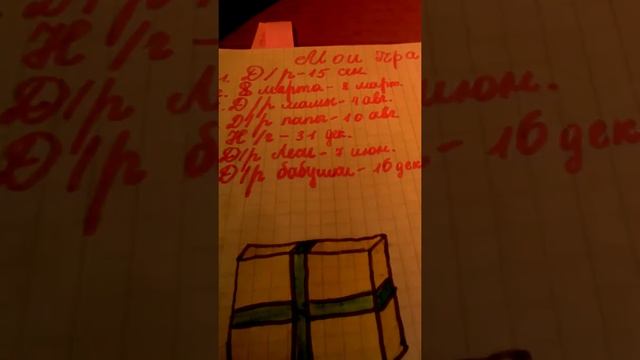 Мои пра
1. Д/р - 15 сен
8 марта - 8 март.
Д/р мамы - 4 авг.
Д/р папы - 10 авг
Н/г - 31 дек.
Д/р Леси - 7 июн.
Д/р бабушки - 16 дек